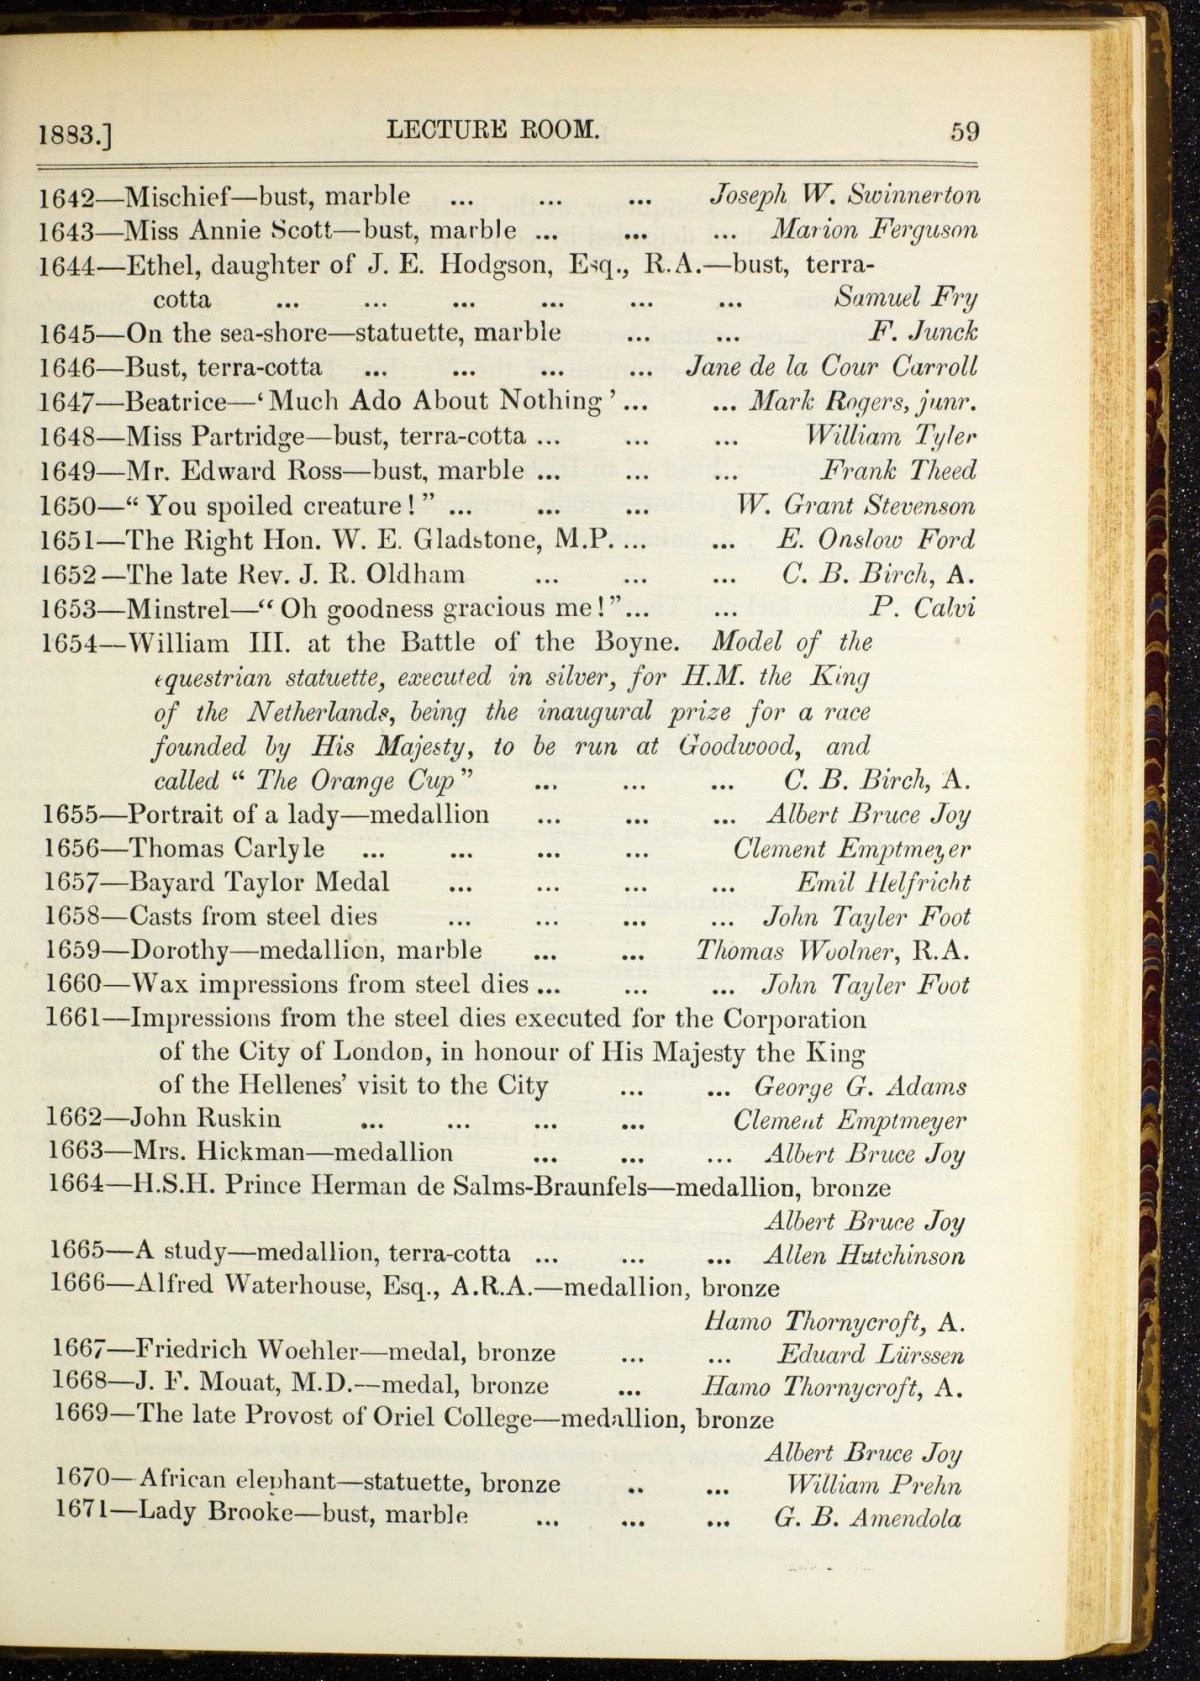 1883.] LECTURE ROOM. 59
1642—Mischief—bust, marble ... ... ... Joseph W. Swinnerton
1643—Miss Annie Scott—bust, marble ... ... ... Marion Ferguson
1644—Ethel, daughter of J. E. Hodgson, Esq., R.A.—bust, terra-
cotta ... ... ... ... ... ... Samuel Fry
1645—On the sea-shore—statuette, marble ... ... F. Junck
1646—Bust, terra-cotta ... ... ... ... Jane de la Cour Carroll
1647—Beatrice—‘Much Ado About Nothing’... ... Mark Rogers, junr.
1648—Miss Partridge—bust, terra-cotta ... ... ... William Tyler
1649—Mr. Edward Ross—bust, marble ... ... ... Frank Theed
1650—“You spoiled creature!” ... ... ... W. Grant Stevenson
1651—The Right Hon. W. E. Gladstone, M.P. ... ... E. Onslow Ford
1652—The late Rev. J. R. Oldham ... ... ... C. B. Birch, A.
1653—Minstrel—“Oh goodness gracious me!”... ... P. Calvi
1654—William III. at the Battle of the Boyne. Model of the
equestrian statuette, executed in silver, for H.M. the King
of the Netherlands, being the inaugural prize for a race
founded by His Majesty, to be run at Goodwood, and
called “The Orange Cup” ... ... ... C. B. Birch, A.
1655—Portrait of a lady—medallion ... ... ... Albert Bruce Joy
1656—Thomas Carlyle ... ... ... ... Clement Emptmeyer
1657—Bayard Taylor Medal ... ... ... ... Emil Helfricht
1658—Casts from steel dies ... ... ... ... John Tayler Foot
1659—Dorothy—medallion, marble ... ... Thomas Woolner, R.A.
1660—Wax impressions from steel dies ... ... ... John Tayler Foot
1661—Impressions from the steel dies executed for the Corporation
of the City of London, in honour of His Majesty the King
of the Hellenes’ visit to the City ... ... George G. Adams
1662—John Ruskin ... ... ... ... Clement Emptmeyer
1663—Mrs. Hickman—medallion ... ... ... Albert Bruce Joy
1664—H.S.H. Prince Herman de Salms-Braunfels—medallion, bronze
Albert Bruce Joy
1665—A study—medallion, terra-cotta ... ... ... Allen Hutchinson
1666—Alfred Waterhouse, Esq., A.R.A.—medallion, bronze
Hamo Thornycroft, A.
1667—Friedrich Woehler—medal, bronze ... ... Eduard Lürssen
1668—J. F. Mouat, M.D.—medal, bronze ... Hamo Thornycroft, A.
1669—The late Provost of Oriel College—medallion, bronze
Albert Bruce Joy
1670—African elephant—statuette, bronze .. ... William Prehn
1671—Lady Brooke—bust, marble ... ... ... G. B. Amendola